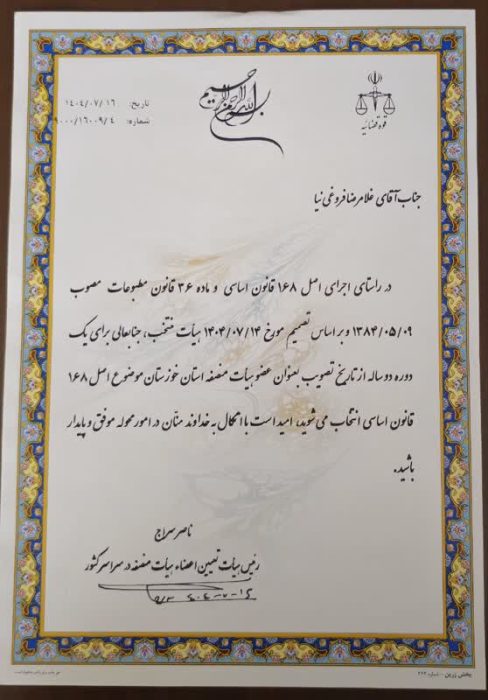 بسم الله الرحمن الرحیم
قوه قضائیه
تاریخ: ۱۴۰۴/۰۷/۱۶
شماره: ۹۰۰۰/۱۶۰۰۹/۴
جناب آقای غلامرضا فروغی نیا
در راستای اجرای اصل ۱۶۸ قانون اساسی و ماده ۳۶ قانون مطبوعات مصوب
۱۳۸۴/۰۵/۰۹ و بر اساس تصمیم مورخ ۱۴۰۴/۰۷/۱۴ هیأت منتخب، جنابعالی برای یک
دوره دو ساله از تاریخ تصویب بعنوان عضو هیأت منصفه استان خوزستان موضوع اصل ۱۶۸
قانون اساسی انتخاب می شوید، امید است با اتکال به خداوند منّان در امور محوله موفق و پایدار
باشید.
ناصر سراج
رئیس هیأت تعیین اعضاء هیأت منصفه در سراسر کشور
پخش زرین - شماره ۲۶۳